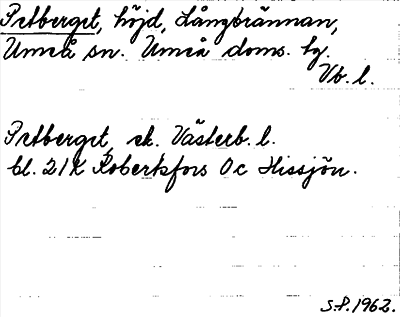 Petberget, höjd, Långbrännan,
Umeå sn. Umeå doms. hg.
Vb. l.
Petberget, ek. Västerb. l.
bl. 21K Robertsfors 0c Hissjön.
S.P. 1962.